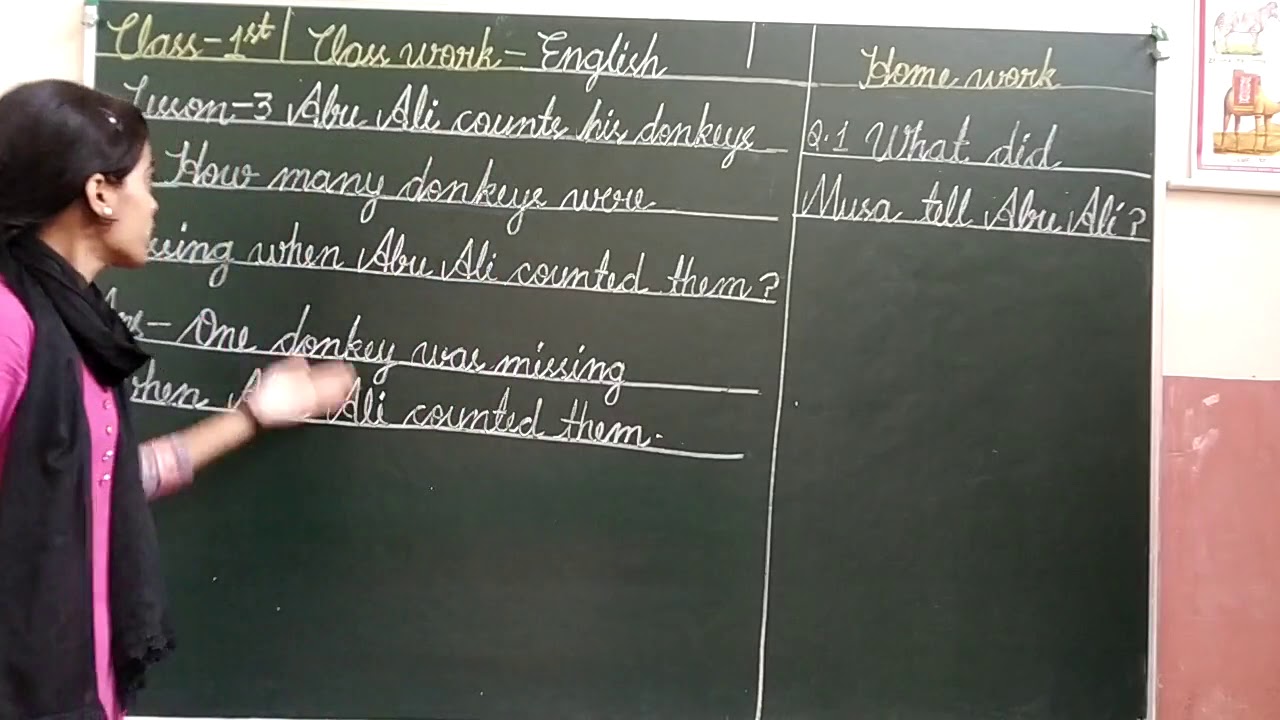 Class-1st | Class work - English
Lesson-3 Abu Ali counts his donkeys
How many donkeys were
missing when Abu Ali counted them?
Ans- One donkey was missing
when Ali counted them.
Home work
Q.1 What did
Musa tell Abu Ali?